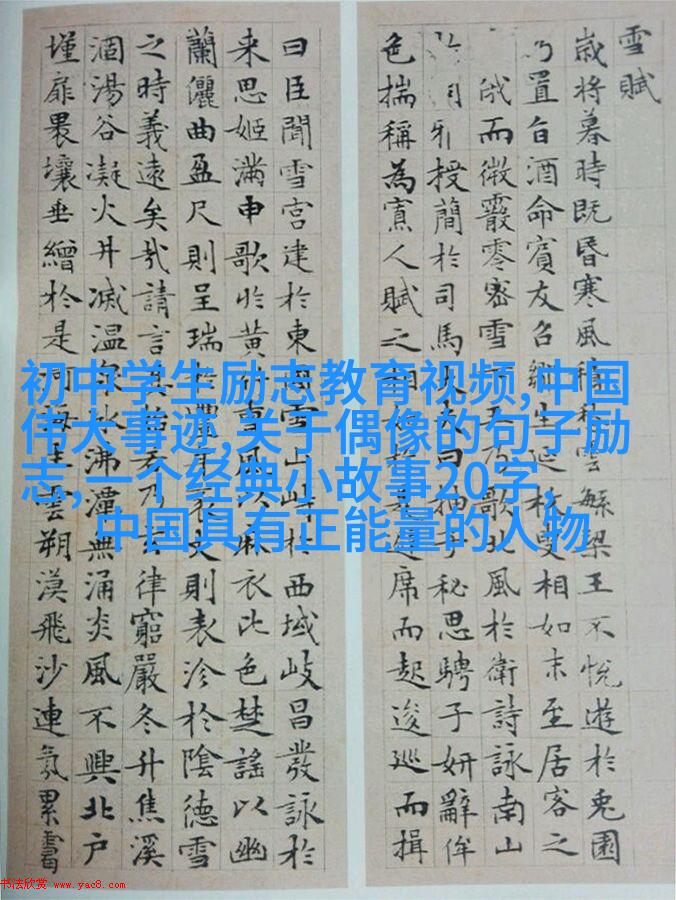 雪賦
歲將暮時既昏寒風積愁雲繁梁王不悅遊於兔園
乃置旨酒命賓友召鄒生延枚叟相如末至居客之
俄而微霰零密雪下王乃歌北風於衛詩詠南山
雅授簡於司馬大夫曰抽子秘思騁子妍辭侔
色揣稱為寡人賦之相如於是避席而起逡巡而揖
曰臣聞雪宮建於東國雪山峙於西域岐昌發詠於
来思姬滿申歌於黃竹曹風以麻衣比色楚謠以幽
蘭儷曲盈尺則呈瑞於豐年袤丈則表沴於陰德雪
之時義遠矣哉請言其始若乃玄律窮嚴冬升焦溪
涸湯谷凝火井滅溫泉冰沸潭無涌炎風不興北户
墐扉裸壤垂繒於是河海生雲朔漠飛沙連氛累靄
初中学生励志教育视频,中国
伟大事迹,关于偶像的句子励
志,一个经典小故事20字,
中国具有正能量的人物
书法欣赏 www.yac8.com